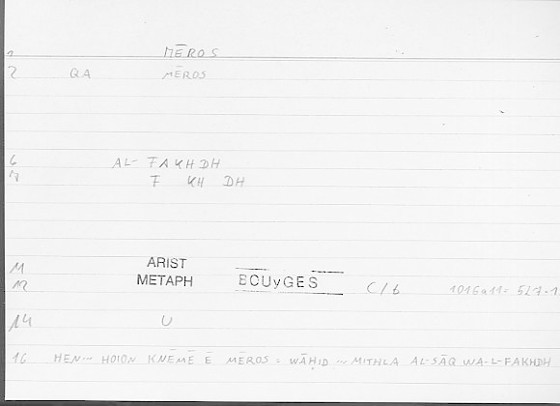 1 MĒROS
2 QA MĒROS
6 AL-FAKHDH
7 F KH DH
11 ARIST
12 METAPH BOUyGES C/b 1016a11= 527.1
14 U
16 HEN ~ HOION KNĒMĒ Ē MĒROS = WĀḤID ~ MITHLA AL-SĀQ WA-L-FAKHDH